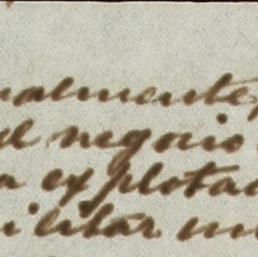 ualmente,
el negocio
a explota
ilitar un